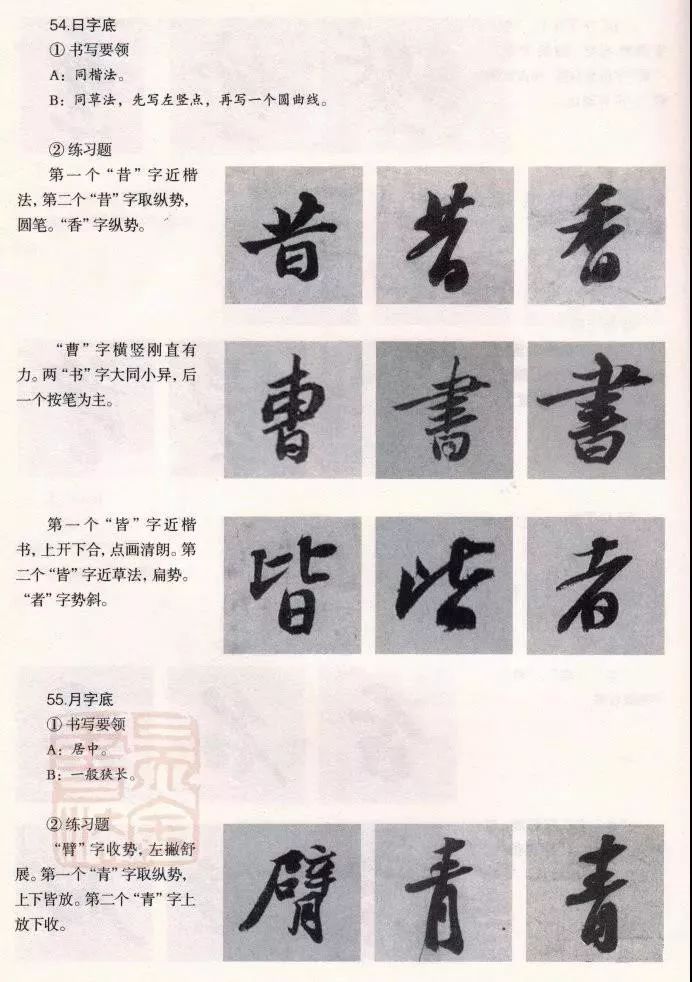 54.日字底
①书写要领
A：同楷法。
B：同草法，先写左竖点，再写一个圆曲线。
②练习题
第一个“昔”字近楷
法，第二个“昔”字取纵势，
圆笔。“香”字纵势。
昔 昔 香
“曹”字横竖刚直有
力。两“书”字大同小异，后
一个按笔为主。
曹 書 書
第一个“皆”字近楷
书，上开下合，点画清朗。第
二个“皆”字近草法，扁势。
“者”字势斜。
皆 皆 者
55.月字底
①书写要领
A：居中。
B：一般狭长。
②练习题
“臂”字收势，左撇舒
展。第一个“青”字取纵势，
上下皆放。第二个“青”字上
放下收。
臂 青 青